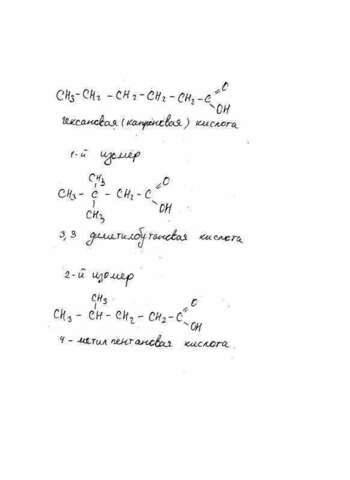 CH₃-CH₂-CH₂-CH₂-CH₂-C=O
OH
гексановая (капроновая) кислота
1-й изомер
CH₃
CH₃-C-CH₂-C=O
CH₃ OH
3,3 диметилбутановая кислота
2-й изомер
CH₃
CH₃-CH-CH₂-CH₂-C=O
OH
4-метилпентановая кислота.